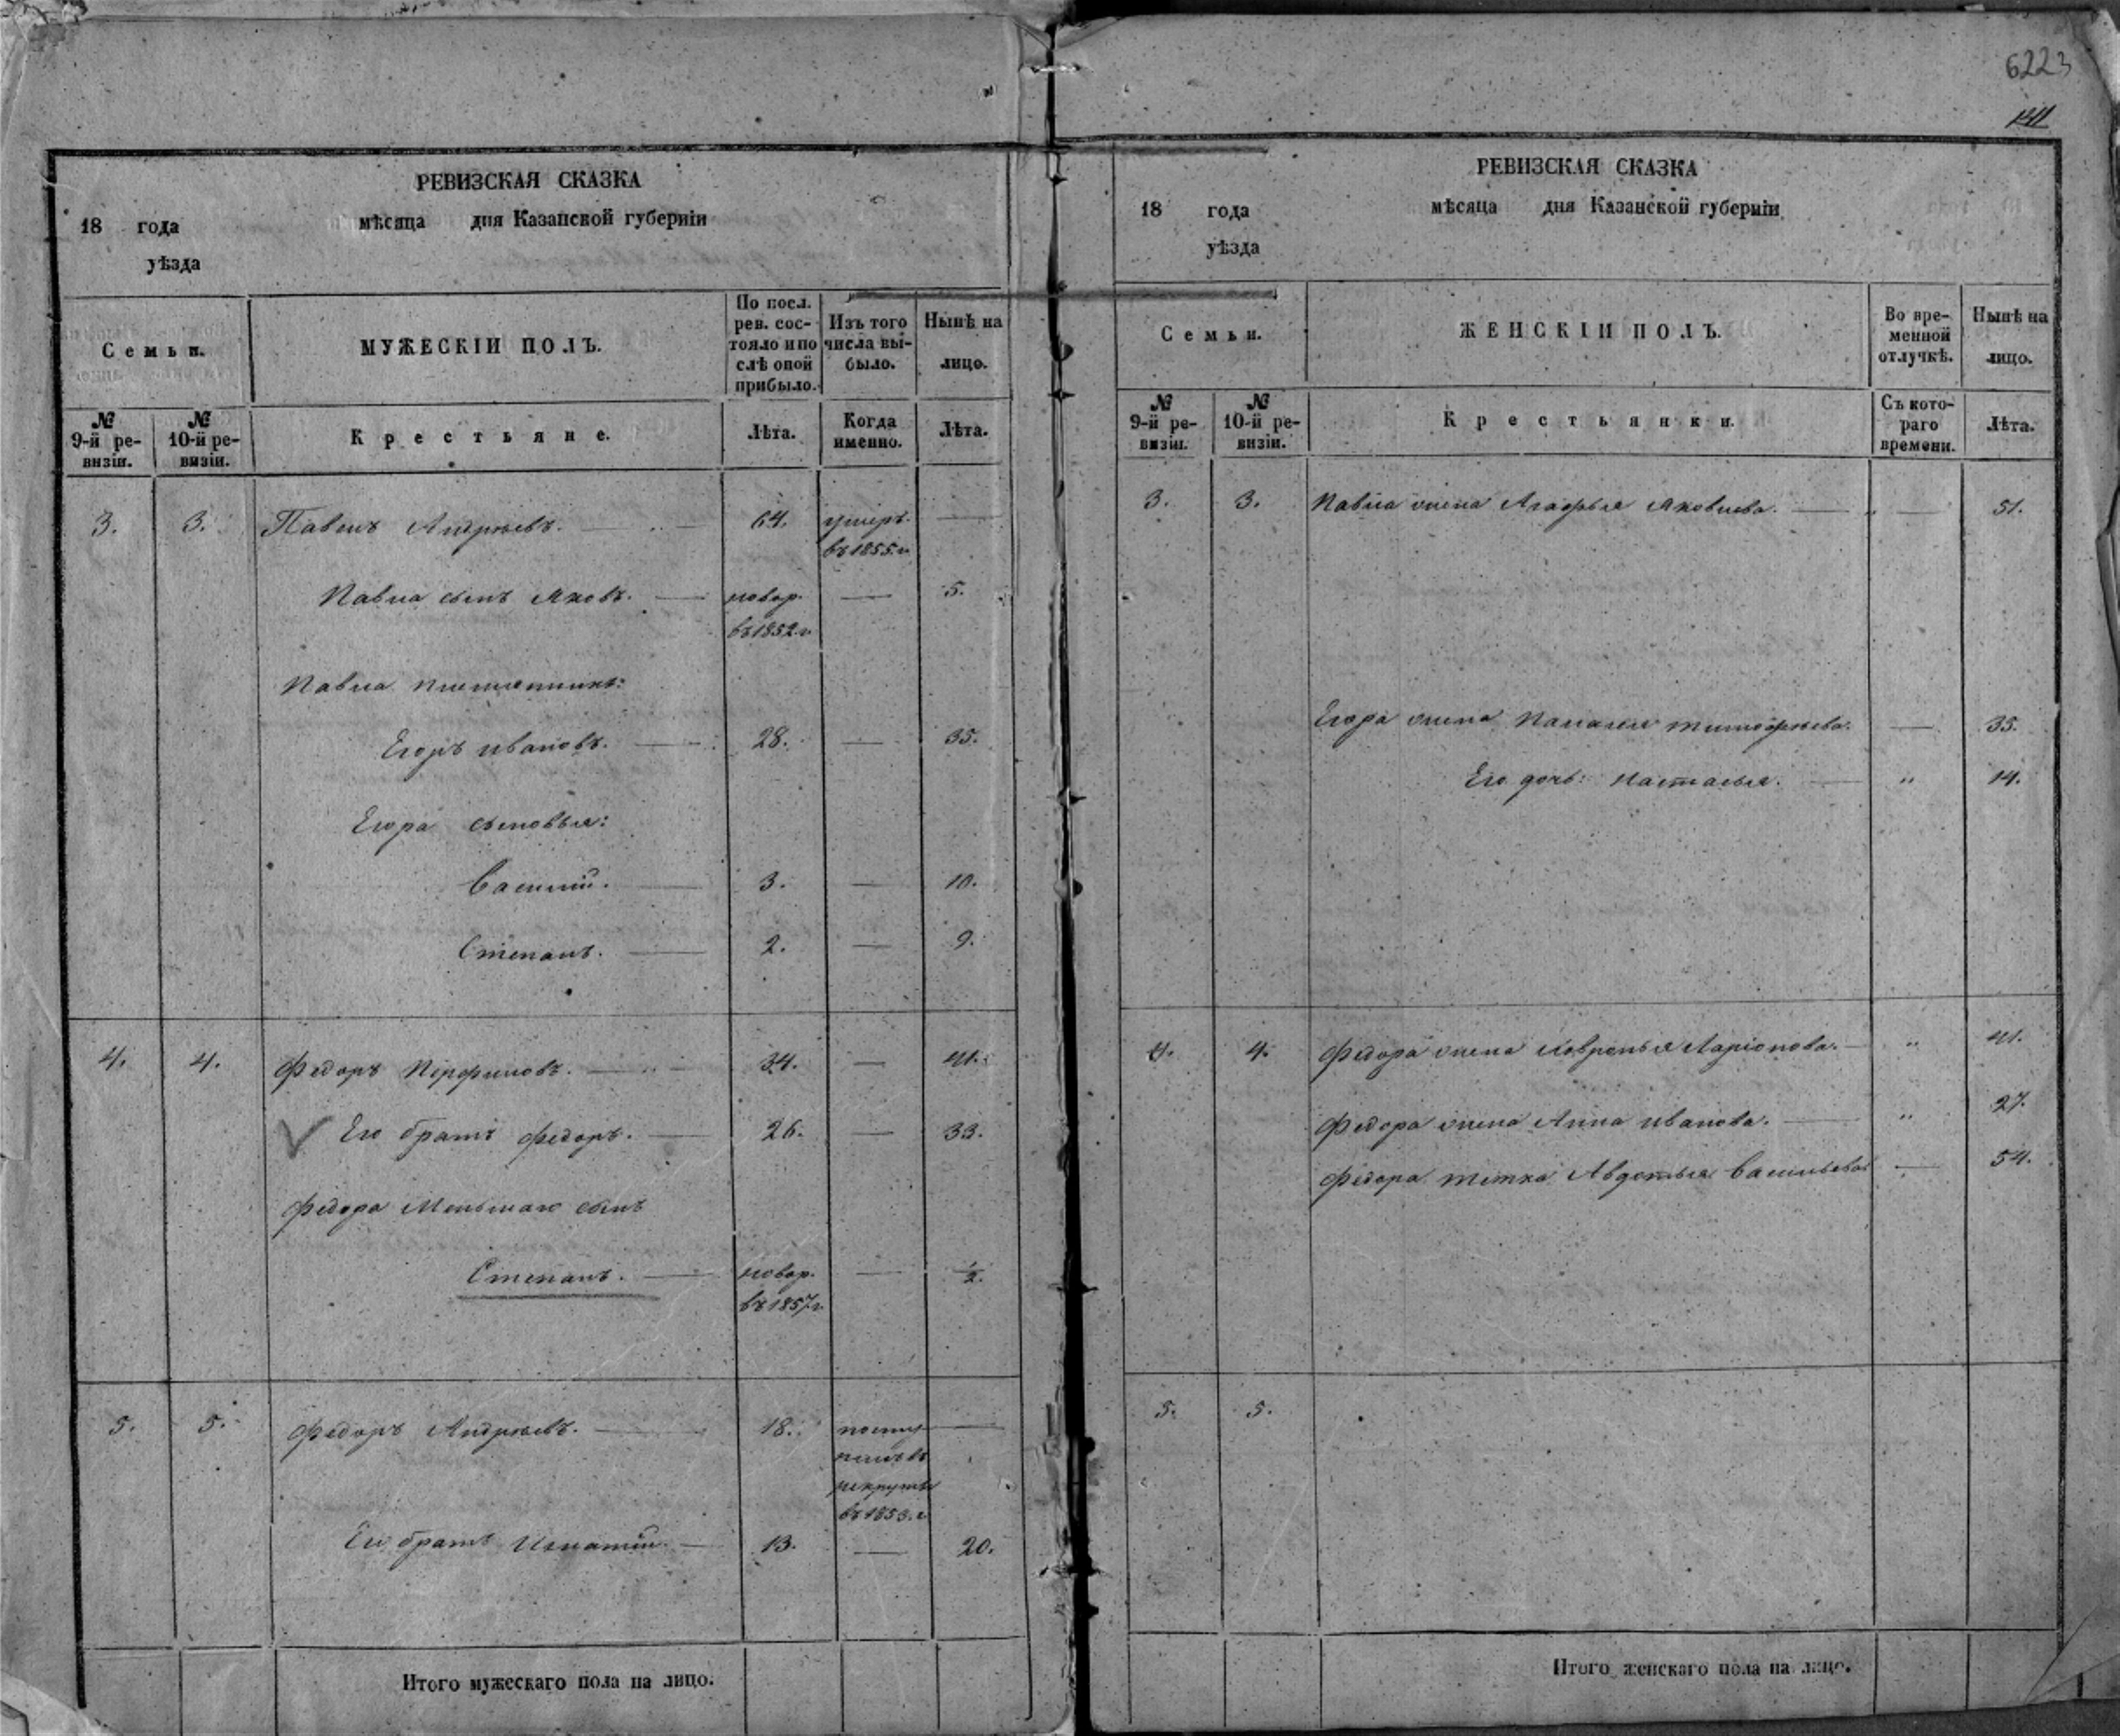 6223
РЕВИЗСКАЯ СКАЗКА
18 года мѣсяца дня Казанской губерніи
уѣзда
Семьи.
МУЖЕСКІЙ ПОЛЪ.
По посл. рев. состояло и послѣ оной прибыло.
Изъ того числа выбыло.
Нынѣ на лицо.
№ 9-й ревизіи.
№ 10-й ревизіи.
Крестьяне.
Лѣта.
Когда именно.
Лѣта.
3. 3. Павелъ Андреевъ. 64. умеръ въ 1855 г.
Павла сынъ Яковъ. новор. въ 1852 г. 5.
Павла племянникъ:
Егоръ Ивановъ. 28. 35.
Егора сыновья:
Василій. 3. 10.
Степанъ. 2. 9.
4. 4. Федоръ Перфиловъ. 34. 41.
Его братъ Федоръ. 26. 33.
Федора Меньшаго сынъ
Степанъ. новор. въ 1857 г. 1/2.
5. 5. Федоръ Андреевъ. 18. поступилъ въ рекруты въ 1853 г.
Его братъ Игнатій. 13. 20.
Итого мужескаго пола на лицо.
РЕВИЗСКАЯ СКАЗКА
18 года мѣсяца дня Казанской губерніи
уѣзда
Семьи.
ЖЕНСКІЙ ПОЛЪ.
Во временной отлучкѣ.
Нынѣ на лицо.
№ 9-й ревизіи.
№ 10-й ревизіи.
Крестьянки.
Съ котораго времени.
Лѣта.
3. 3. Павла жена Агафья Яковлева. 51.
Егора жена Палагея Тимофѣева. 35.
Его дочь: Настасья. " 14.
4. 4. Федора жена Хавронья Ларіонова. " 41.
Федора жена Анна Иванова. " 27.
Федора тетка Авдотья Васильева 54.
5. 5.
Итого женскаго пола на лицо.